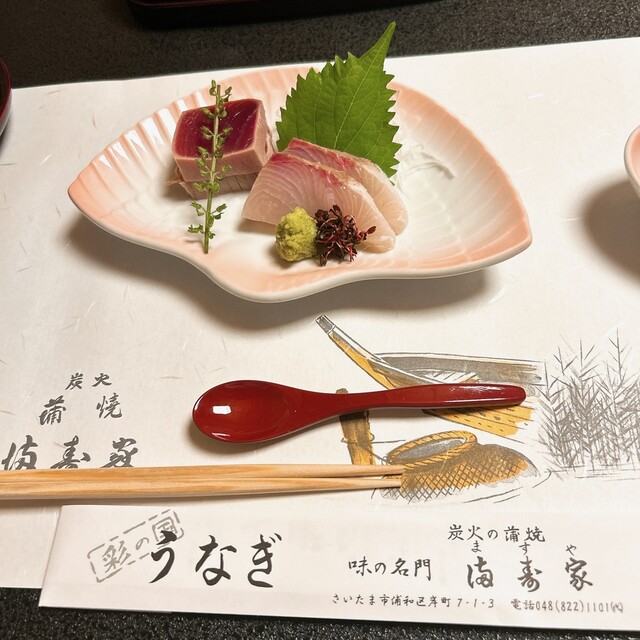 炭火
蒲焼
満寿家
彩の国
うなぎ
味の名門
炭火の蒲焼
ます や
満寿家
さいたま市浦和区岸町7-1-3 電話048(822)1101㈹